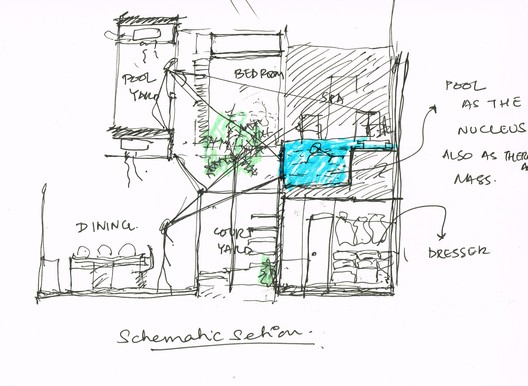 BEDROOM
POOL
YARD
SPA
POOL
AS THE
NUCLEUS
ALSO AS
MASS.
DINING.
COURT
YARD
DRESSER
Schematic Setion.